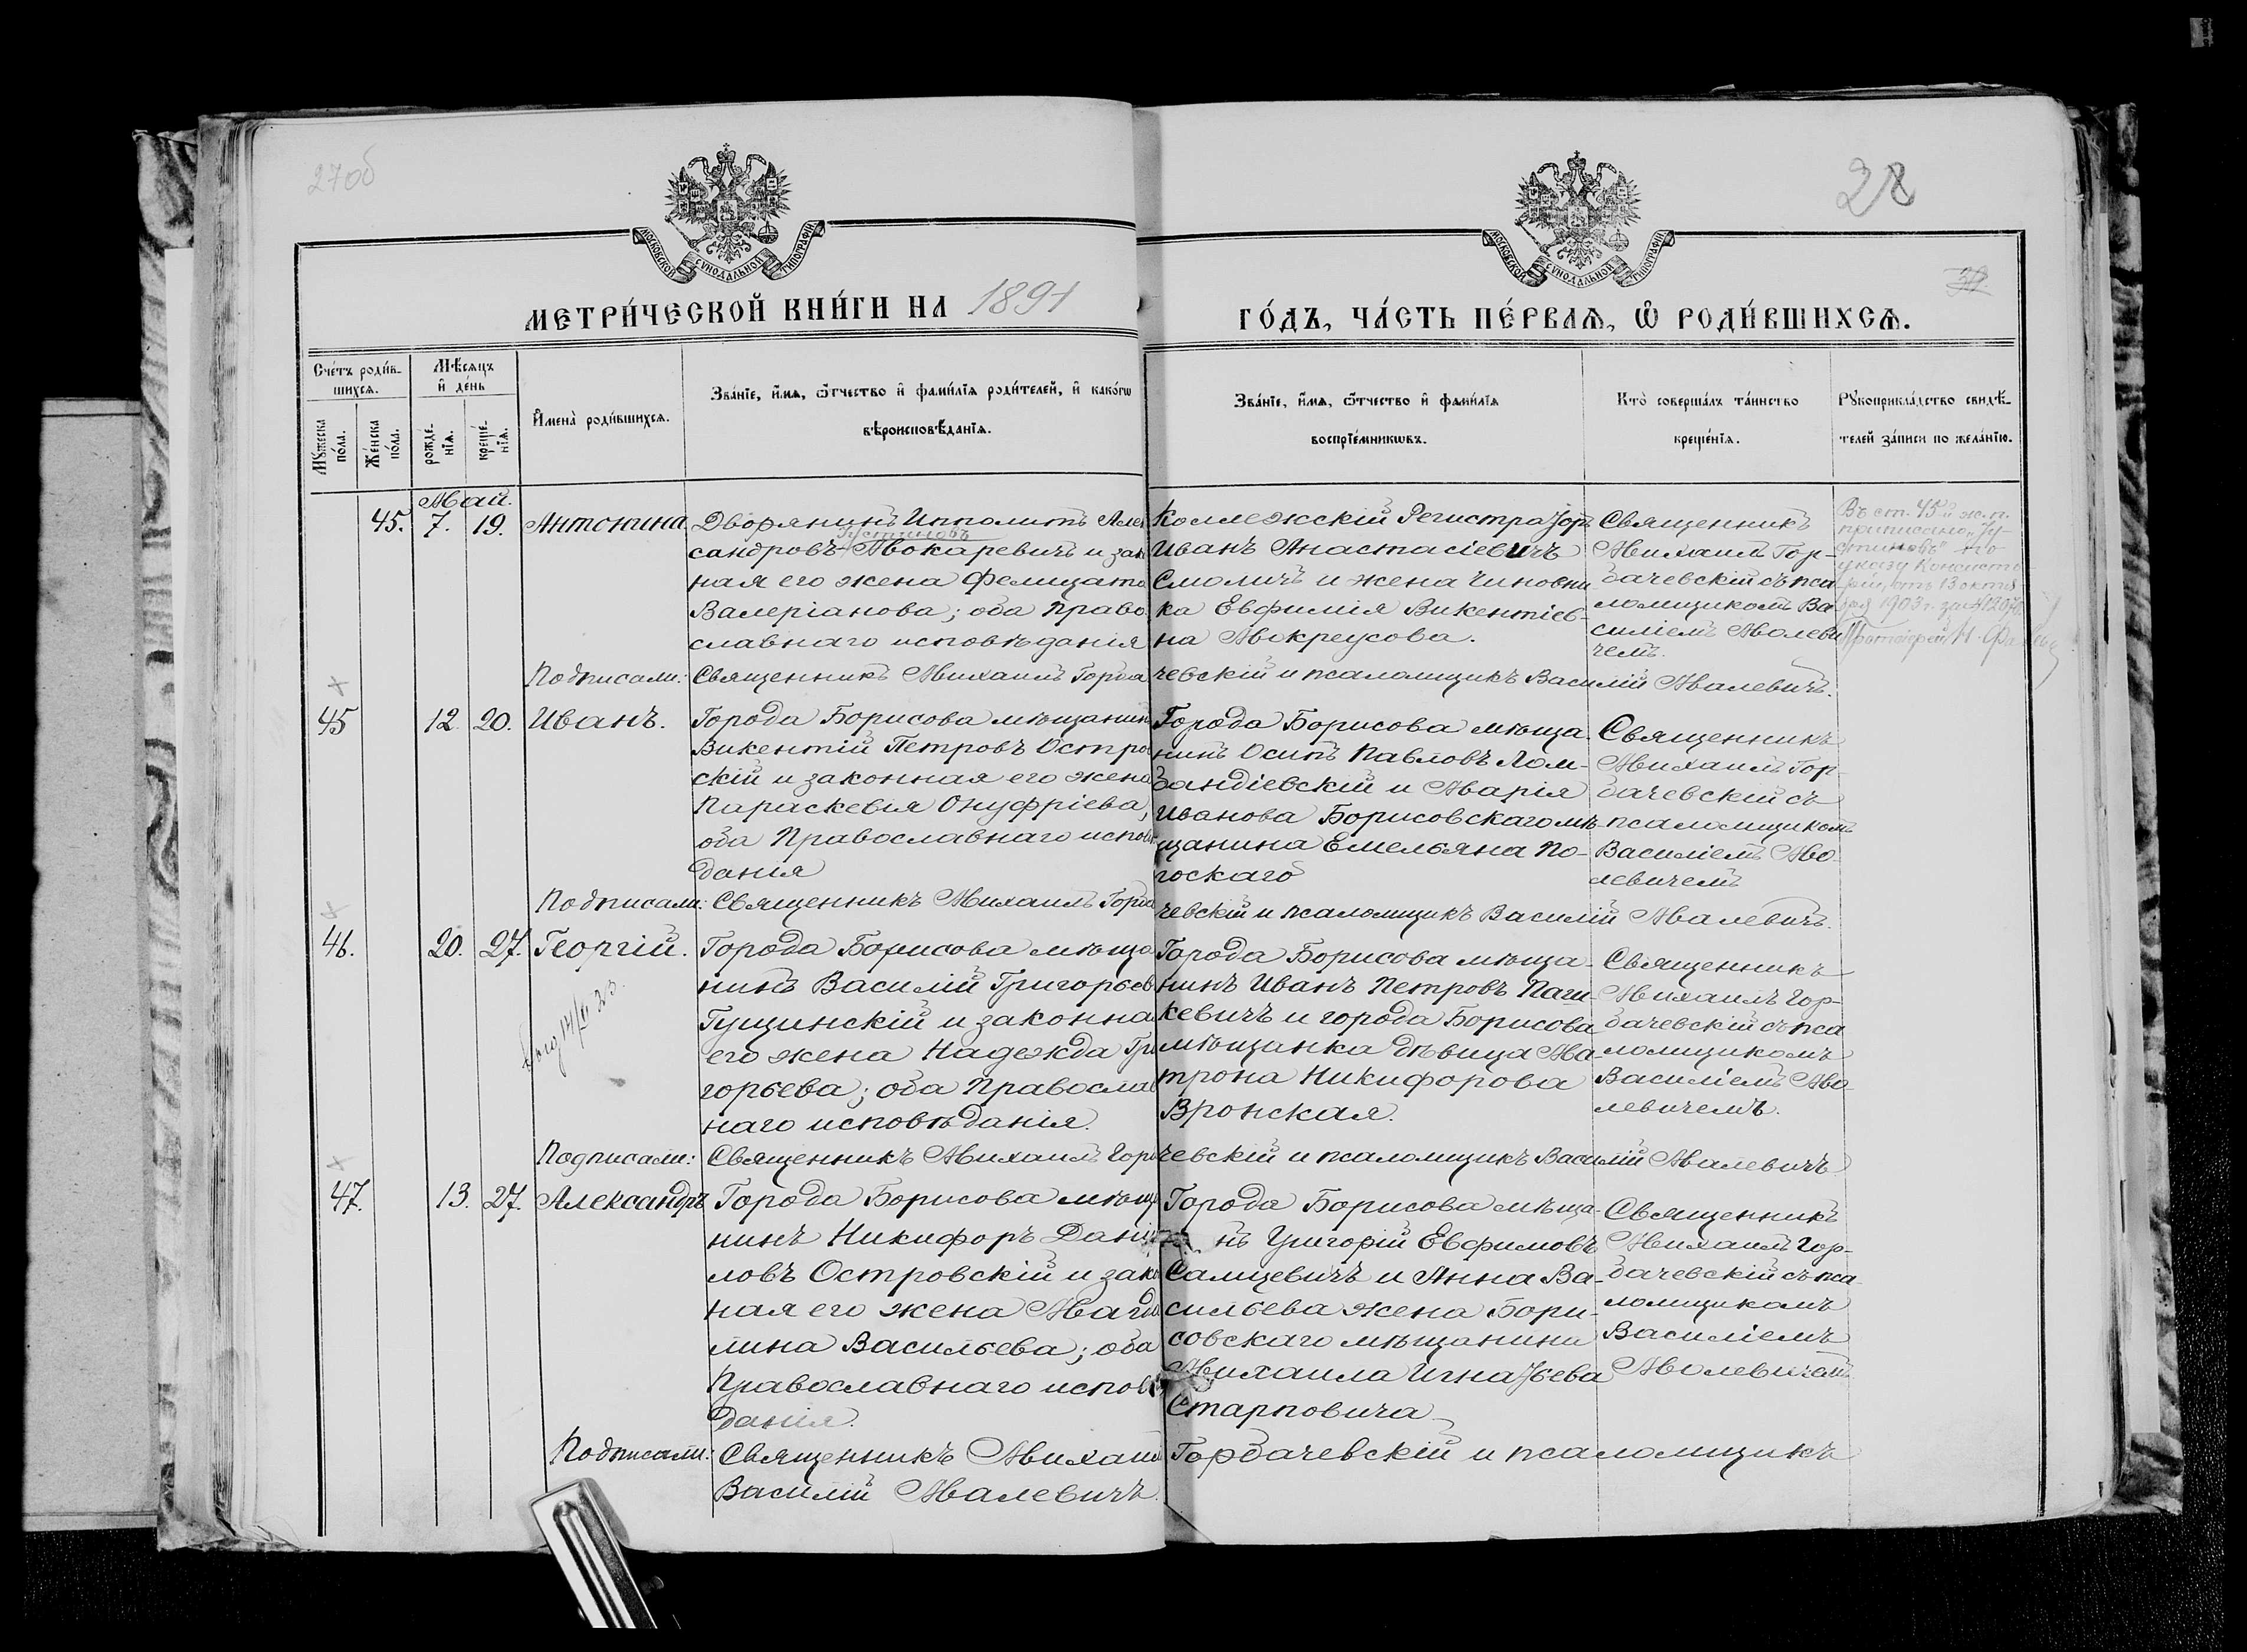 27об
28
МОСКОВСКОЙ СУНОДАЛЬНОЙ ТИПОГРАФІИ
МОСКОВСКОЙ СУНОДАЛЬНОЙ ТИПОГРАФІИ
МЕТРИ́ЧЕСКОЙ КНИ́ГИ НА 1891
ГО́ДЪ, ЧА́СТЬ ПЕ́РВАѦ, Ѿ РОДИ́ВШИХСѦ.
Сче́тъ роди́в-
шихсѧ.
Мꙋ́жеска
по́ла.
Же́нска
по́ла.
Мѣ́сѧцъ
и҆ де́нь
рожде́-
нїѧ.
креще́-
нїѧ.
И҆мена̀ роди́вшихсѧ.
Зва́нїе, и҆́мѧ, ѻ҆́тчество и҆ фами́лїѧ роди́телей, и҆ како́гѡ
вѣроисповѣ́данїѧ.
Зва́нїе, и҆́мѧ, ѻ҆́тчество и҆ фами́лїѧ
воспрїе́мникѡвъ.
Кто̀ соверша́лъ та́инство
креще́нїѧ.
Рꙋкоприкла́дство свидѣ́-
телей за́писи по жела́нїю.
Май.
45. 7. 19. Антонина.
Дворянинъ Ипполитъ Алек
Густиновъ
сандровъ Мокаревичъ и закон
ная его жена Фелицата
Валеріанова; оба Право
славнаго исповѣданія
Коллежскій Регистраторъ
Иванъ Анастасіевичъ
Смоличъ и жена Чиновни
ка Евфимія Викентіев-
на Мокреусова.
Священникъ
Михаилъ Гор-
бачевскій съ пса
ломщикомъ Ва-
силіемъ Молеви
чемъ.
Въ ст. 45й ж. п.
приписано „Гу-
стиновъ" по
указу Консисто
ріи, отъ 13 октя
бря 1903 г. за №
Протоіерей Н.
Подписали: Священникъ Михаилъ Горба
чевскій и псаломщикъ Василій Малевичъ.
45 12 20. Иванъ.
Города Борисова мѣщанинъ
Викентій Петровъ Остров
скій и законная его жена
Параскевія Онуфріева,
оба Православнаго исповѣ
данія
Города Борисова мѣща-
нинъ Осипъ Павловъ Лом-
бандіевскій и Марія
Иванова Борисовскаго мѣ-
щанина Емельяна По-
госкаго
Священникъ
Михаилъ Гор-
бачевскій съ
псаломщикомъ
Василіемъ Мо-
левичемъ
Подписали: Священникъ Михаилъ Горба
чевскій и псаломщикъ Василій Малевичъ.
46. 20. 27. Георгій.
Города Борисова мѣща
нинъ Василій Григорьев
Гущинскій и законна
его жена Надежда Гри
горьева; оба Православ
наго исповѣданія.
Города Борисова мѣща-
нинъ Иванъ Петровъ Паци-
кевичъ и города Борисова
мѣщанка дѣвица Ма-
трона Никифорова
Вронская.
Священникъ
Михаилъ Гор-
бачевскій съ пса
ломщикомъ
Василіемъ Мо-
левичемъ.
Подписали: Священникъ Михаилъ Горба
чевскій и псаломщикъ Василій Малевичъ
47. 13. 27. Александръ
Города Борисова мѣща
нинъ Никифоръ Дани
ловъ Островскій и закон
ная его жена Магда
лина Васильева; оба
Православнаго исповѣ
данія.
Города Борисова мѣща-
нъ Григорій Евфимовъ
Салцевичъ и Анна Ва-
сильева жена Бори-
совскаго мѣщанина
Михаила Игнатьева
Старповича
Священникъ
Михаилъ Гор-
бачевскій съ пса
ломщикомъ
Василіемъ
Молевичемъ
Подписали: Священникъ Михаилъ
Горбачевскій и псаломщикъ
Василій Малевичъ.